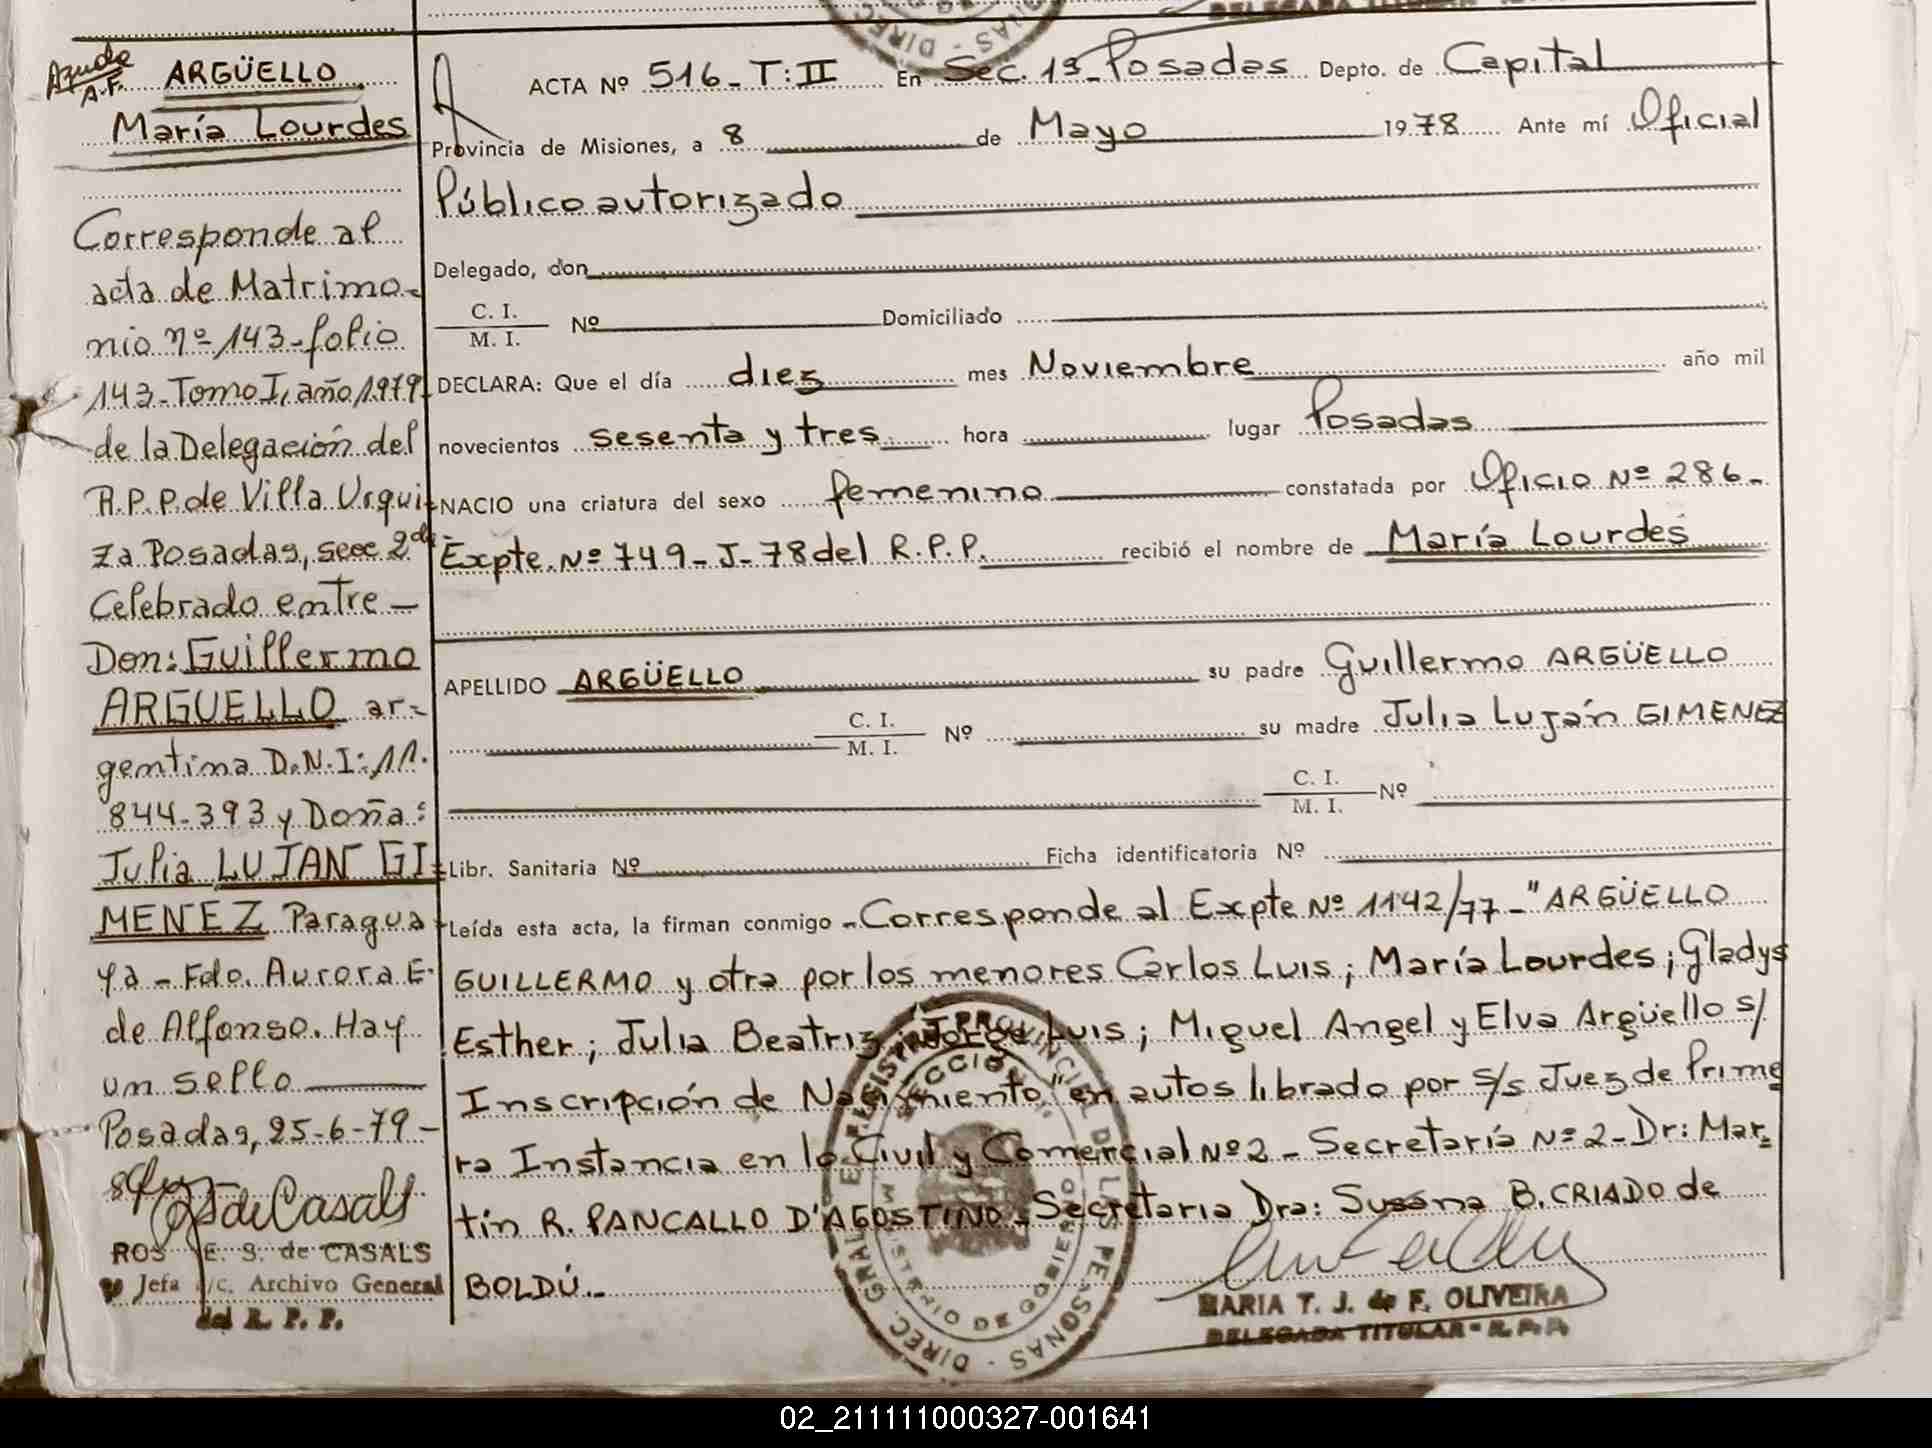 Ayuda
A.F.
ARGÜELLO
María Lourdes
Corresponde al
acta de Matrimo-
nio nº 143-folio
143-Tomo I, año 1979
de la Delegación del
R.P.P. de Villa Urqui-
za Posadas, secc. 2da
Celebrado entre —
Don: Guillermo
ARGUELLO ar-
gentina D.N.I: 11.
844.393 y Doña:
Julia LUJAN GI-
MENEZ Paragua-
ya - Fdo. Aurora E.
de Alfonso. Hay
un sello
Posadas, 25-6-79-
de Casals
ROS E. S. de CASALS
Jefa /c. Archivo General
del R. P. P.
ACTA Nº 516-T:II En Sec. 1ª-Posadas Depto. de Capital
Provincia de Misiones, a 8 de Mayo 1978 Ante mí Oficial
Público autorizado
Delegado, don
C. I.
M. I. Nº Domiciliado
DECLARA: Que el día diez mes Noviembre año mil
novecientos sesenta y tres hora lugar Posadas
NACIO una criatura del sexo femenino constatada por Oficio Nº 286-
Expte. Nº 749-J-78 del R.P.P. recibió el nombre de María Lourdes
APELLIDO ARGÜELLO su padre Guillermo ARGÜELLO
C. I.
M. I. Nº su madre Julia Luján GIMENEZ
C. I.
M. I. Nº
Libr. Sanitaria Nº Ficha identificatoria Nº
Leída esta acta, la firman conmigo - Corresponde al Expte Nº 1142/77-"ARGÜELLO
GUILLERMO y otra por los menores Carlos Luis; María Lourdes; Gladys
Esther; Julia Beatriz; Jorge Luis; Miguel Angel y Elva Argüello s/
Inscripción de Nacimiento" en autos librado por s/s Juez de Prime
ra Instancia en lo Civil y Comercial Nº2 - Secretaría Nº 2- Dr: Mar-
tín R. PANCALLO D'AGOSTINO- Secretaria Dra: Susana B. CRIADO de
BOLDÚ.-
DIREC. GRAL. DEL REGISTRO PROVINCIAL DE LAS PERSONAS
SECCION
MINISTERIO DE GOBIERNO
MARIA T. J. de F. OLIVEIRA
DELEGADA TITULAR - R. P. P.
02_211111000327-001641